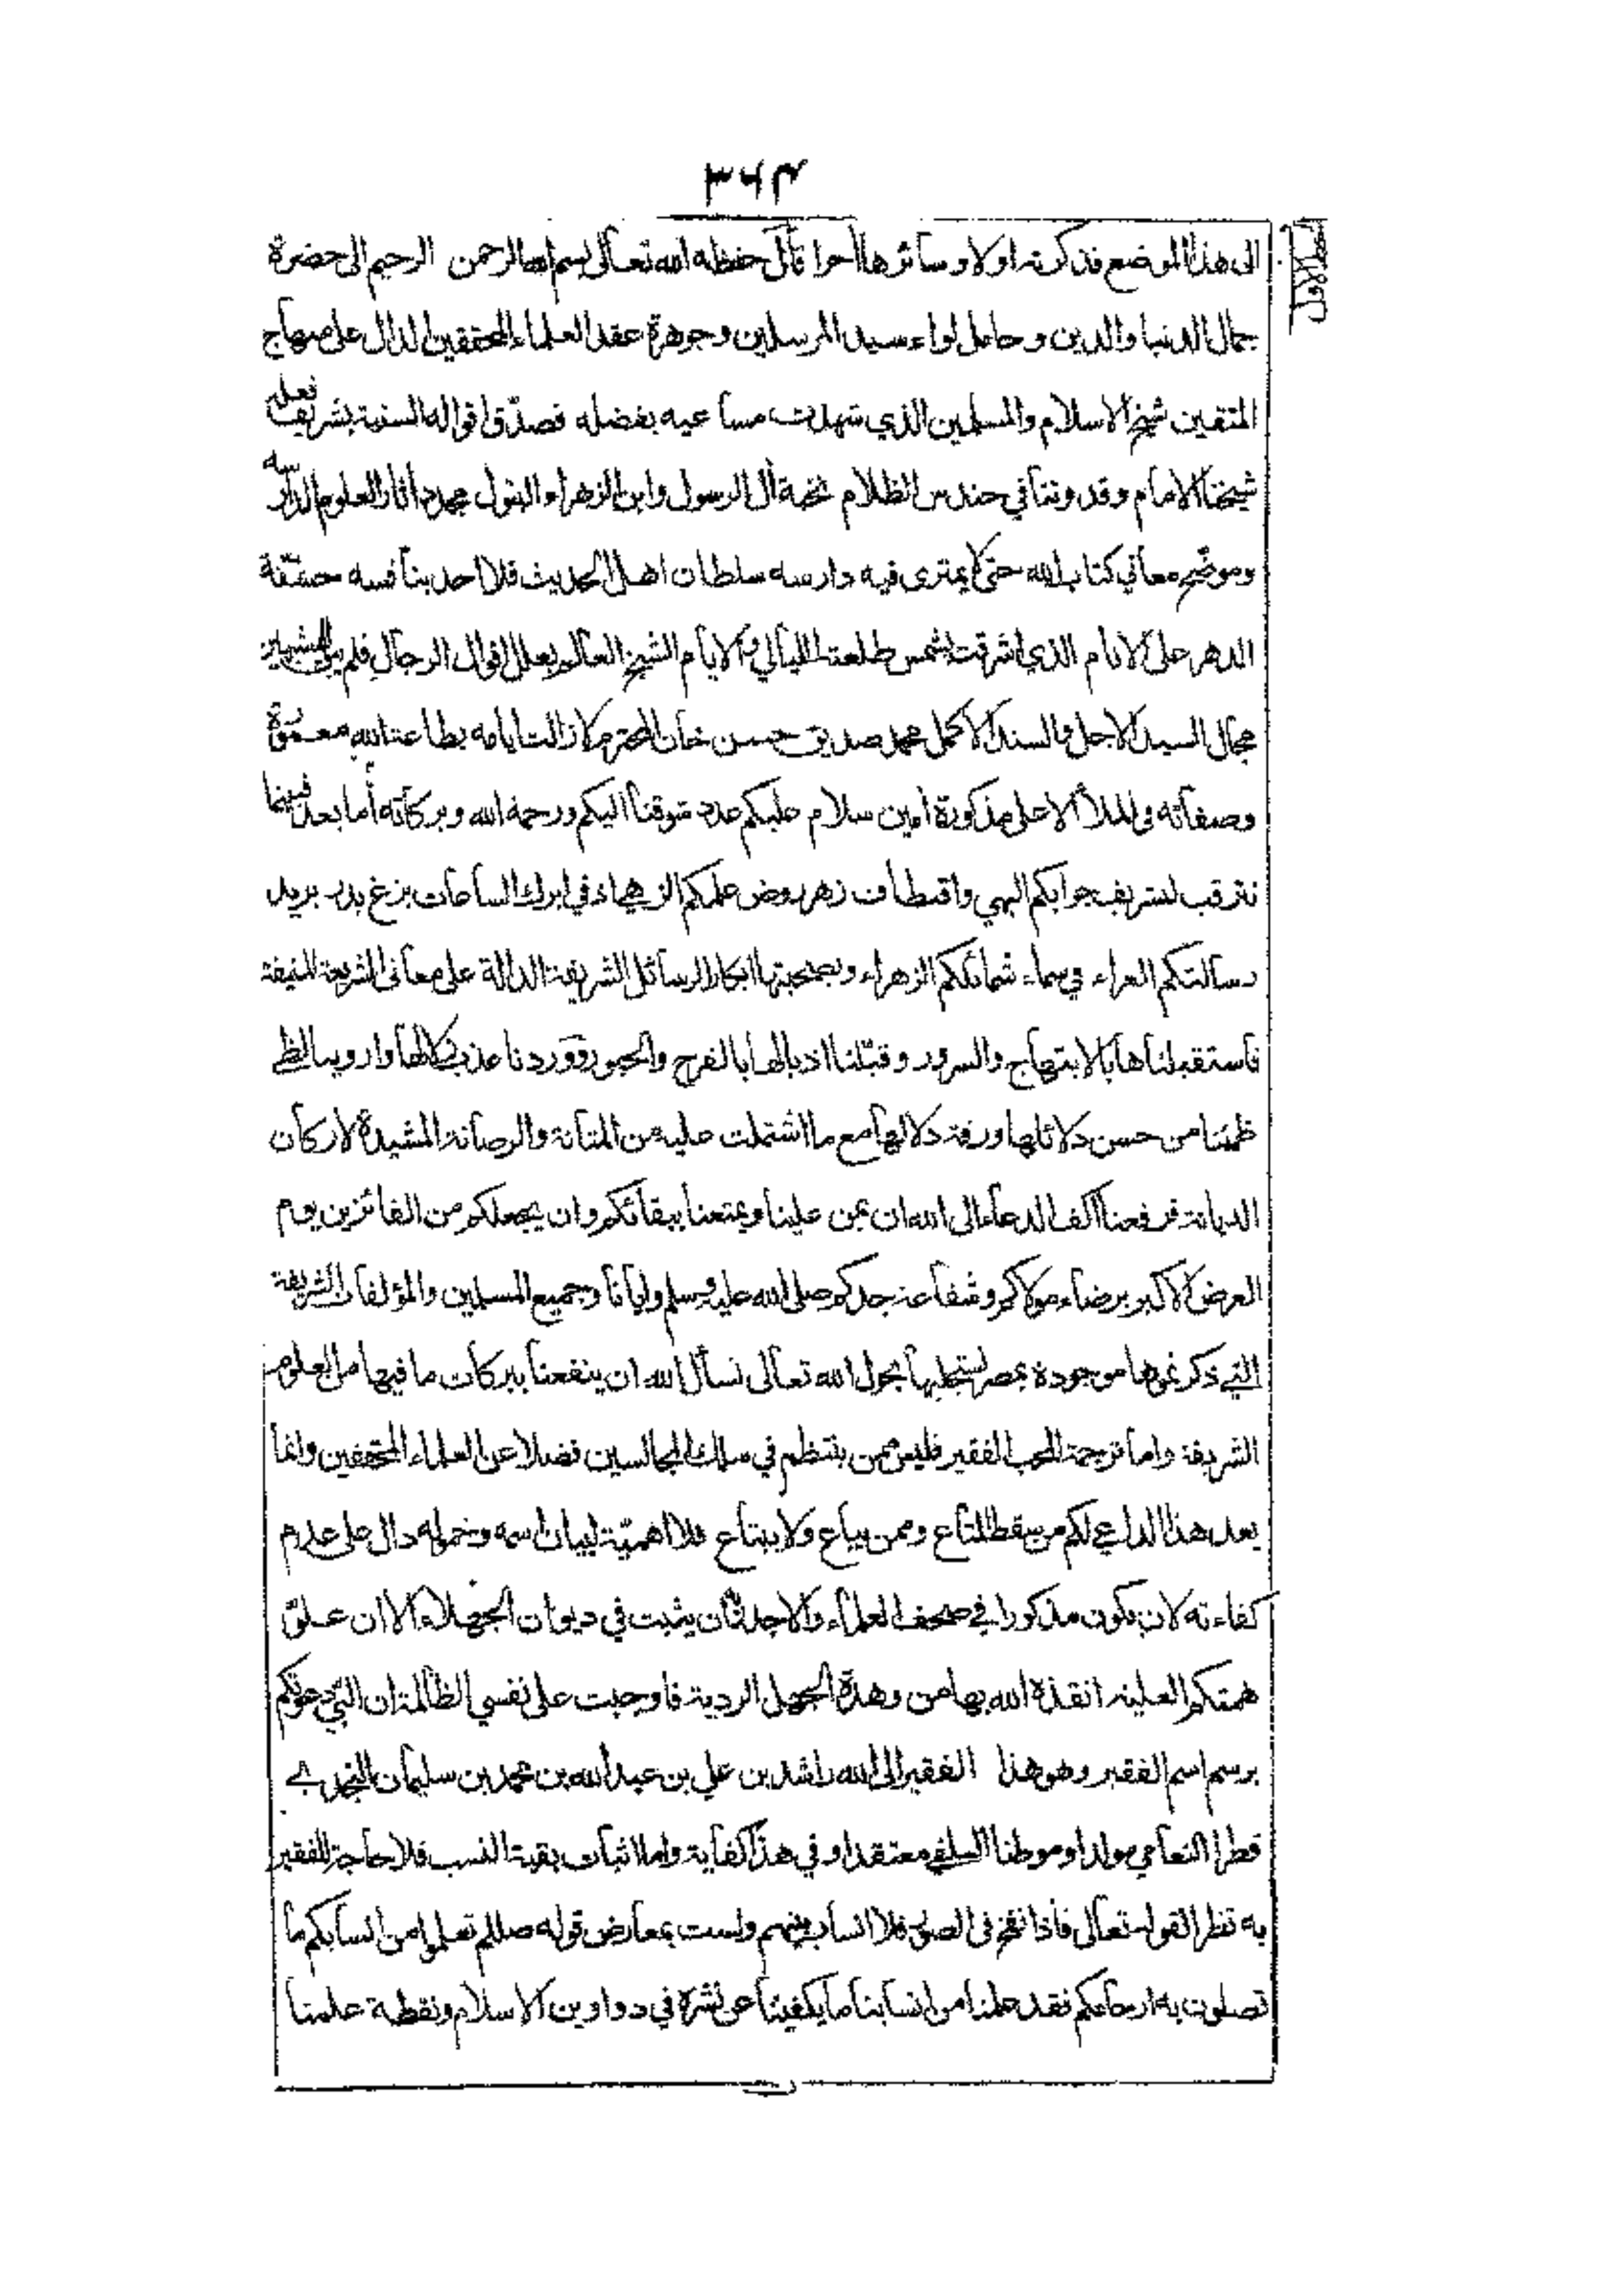 ٣٦٣
الى هذا الموضع فذكرته اولا وسآثرها احرا قال حفظه الله تعالى بسم الله الرحمن الرحيم الى حضرة
جمال الدنيا والدين وحامل لواء سيد المرسلين وجوهرة عقد العلماء المحققين الدال على منهاج
المتقين شيخ الاسلام والمسلمين الذي شهدت مساعيه بفضله فصدّق اقواله السنية بشريف فعله
شيخنا الامام وقدوتنا في حندس الظلام نخبة آل الرسول وابن الزهراء البتول مجدد آثار العلوم الدارسه
وموضح معاني كتاب الله حتى لا يمترى فيه دارسه سلطان اهل الحديث فلا احد ينافسه حسنة
الدهر على الانام الذي اشرقت شمس طلعته الليالي والايام الشيخ العالم بعلل اقوال الرجال فلم
مجال السيد الاجل والسند الاكمل محمد صديق حسن خان المحترم لا زالت ايامه بطاعة الله معمورة
وصفاته في الملأ الاعلى مذكورة امين سلام عليكم عدد شوقنا اليكم ورحمة الله وبركاته أما بعد فبينما
نترقب لشريف جوابكم البهي واقتطاف زهر روض علمكم الزهي اذ في ابرك الساعات بزغ بدر بريد
رسالتكم الغراء في سماء شمائلكم الزهراء وبصحبتها ابكار الرسائل الشريفة الدالة على معانى الشريعة المنيفة
فاستقبلناها بالابتهاج والسرور وقبّلنا اذيالها بالفرح والحبور ووردنا عذب زلالها واروينا لظى
ظمئنا من حسن دلائلها ورقة دلالها مع ما اشتملت عليه من المتانة والرصانة المشيدة لاركان
الديانة فرفعنا اكف الدعاء الى الله ان يمن علينا ويمتعنا ببقائكم وان يجعلكم من الفائزين يوم
العرض الاكبر برضاء مولاكم وشفاعة جدكم صلى الله عليه وسلم وايانا وجميع المسلمين والمؤلفات الشريفة
التي ذكرتموها موجودة بمصر سنجلبها بحول الله تعالى نسأل الله ان ينفعنا ببركات ما فيها من العلوم
الشريفة واما ترجمة المحب الفقير فليس ممن ينتظم في سلك المجالسين فضلا عن العلماء المحققين وانما
يعد هذا الداعي لكم من سقط المتاع وممن يباع ولا يبتاع فلا اهميّة لبيان اسمه وخموله دال على عدم
كفاءته لان يكون مذكورا في صحف العلماء والاجدر ان يثبت في ديوان الجهلاء الا ان علوّ
همتكم العلية انقذه الله بها من وهدة الجهل الردية فاوجبت على نفسي الظالمة ان اجيب دعوتكم
برسم اسم الفقير وهو هذا الفقير الى الله راشد بن علي بن عبد الله بن محمد بن سليمان النجدي
قطرا النعامي مولدا وموطنا السلفي معتقدا وفي هذا كفاية واما اثبات بقية النسب فلا حاجة للفقير
به نظرا لقوله تعالى فاذا نفخ فى الصور فلا انساب بينهم ولست بمعارض قوله صللم تعلموا من انسابكم ما
تصلون به ارحامكم فقد علمنا من انسابنا ما يكفينا عن نشره في دواوين الاسلام ونقطة علمنا